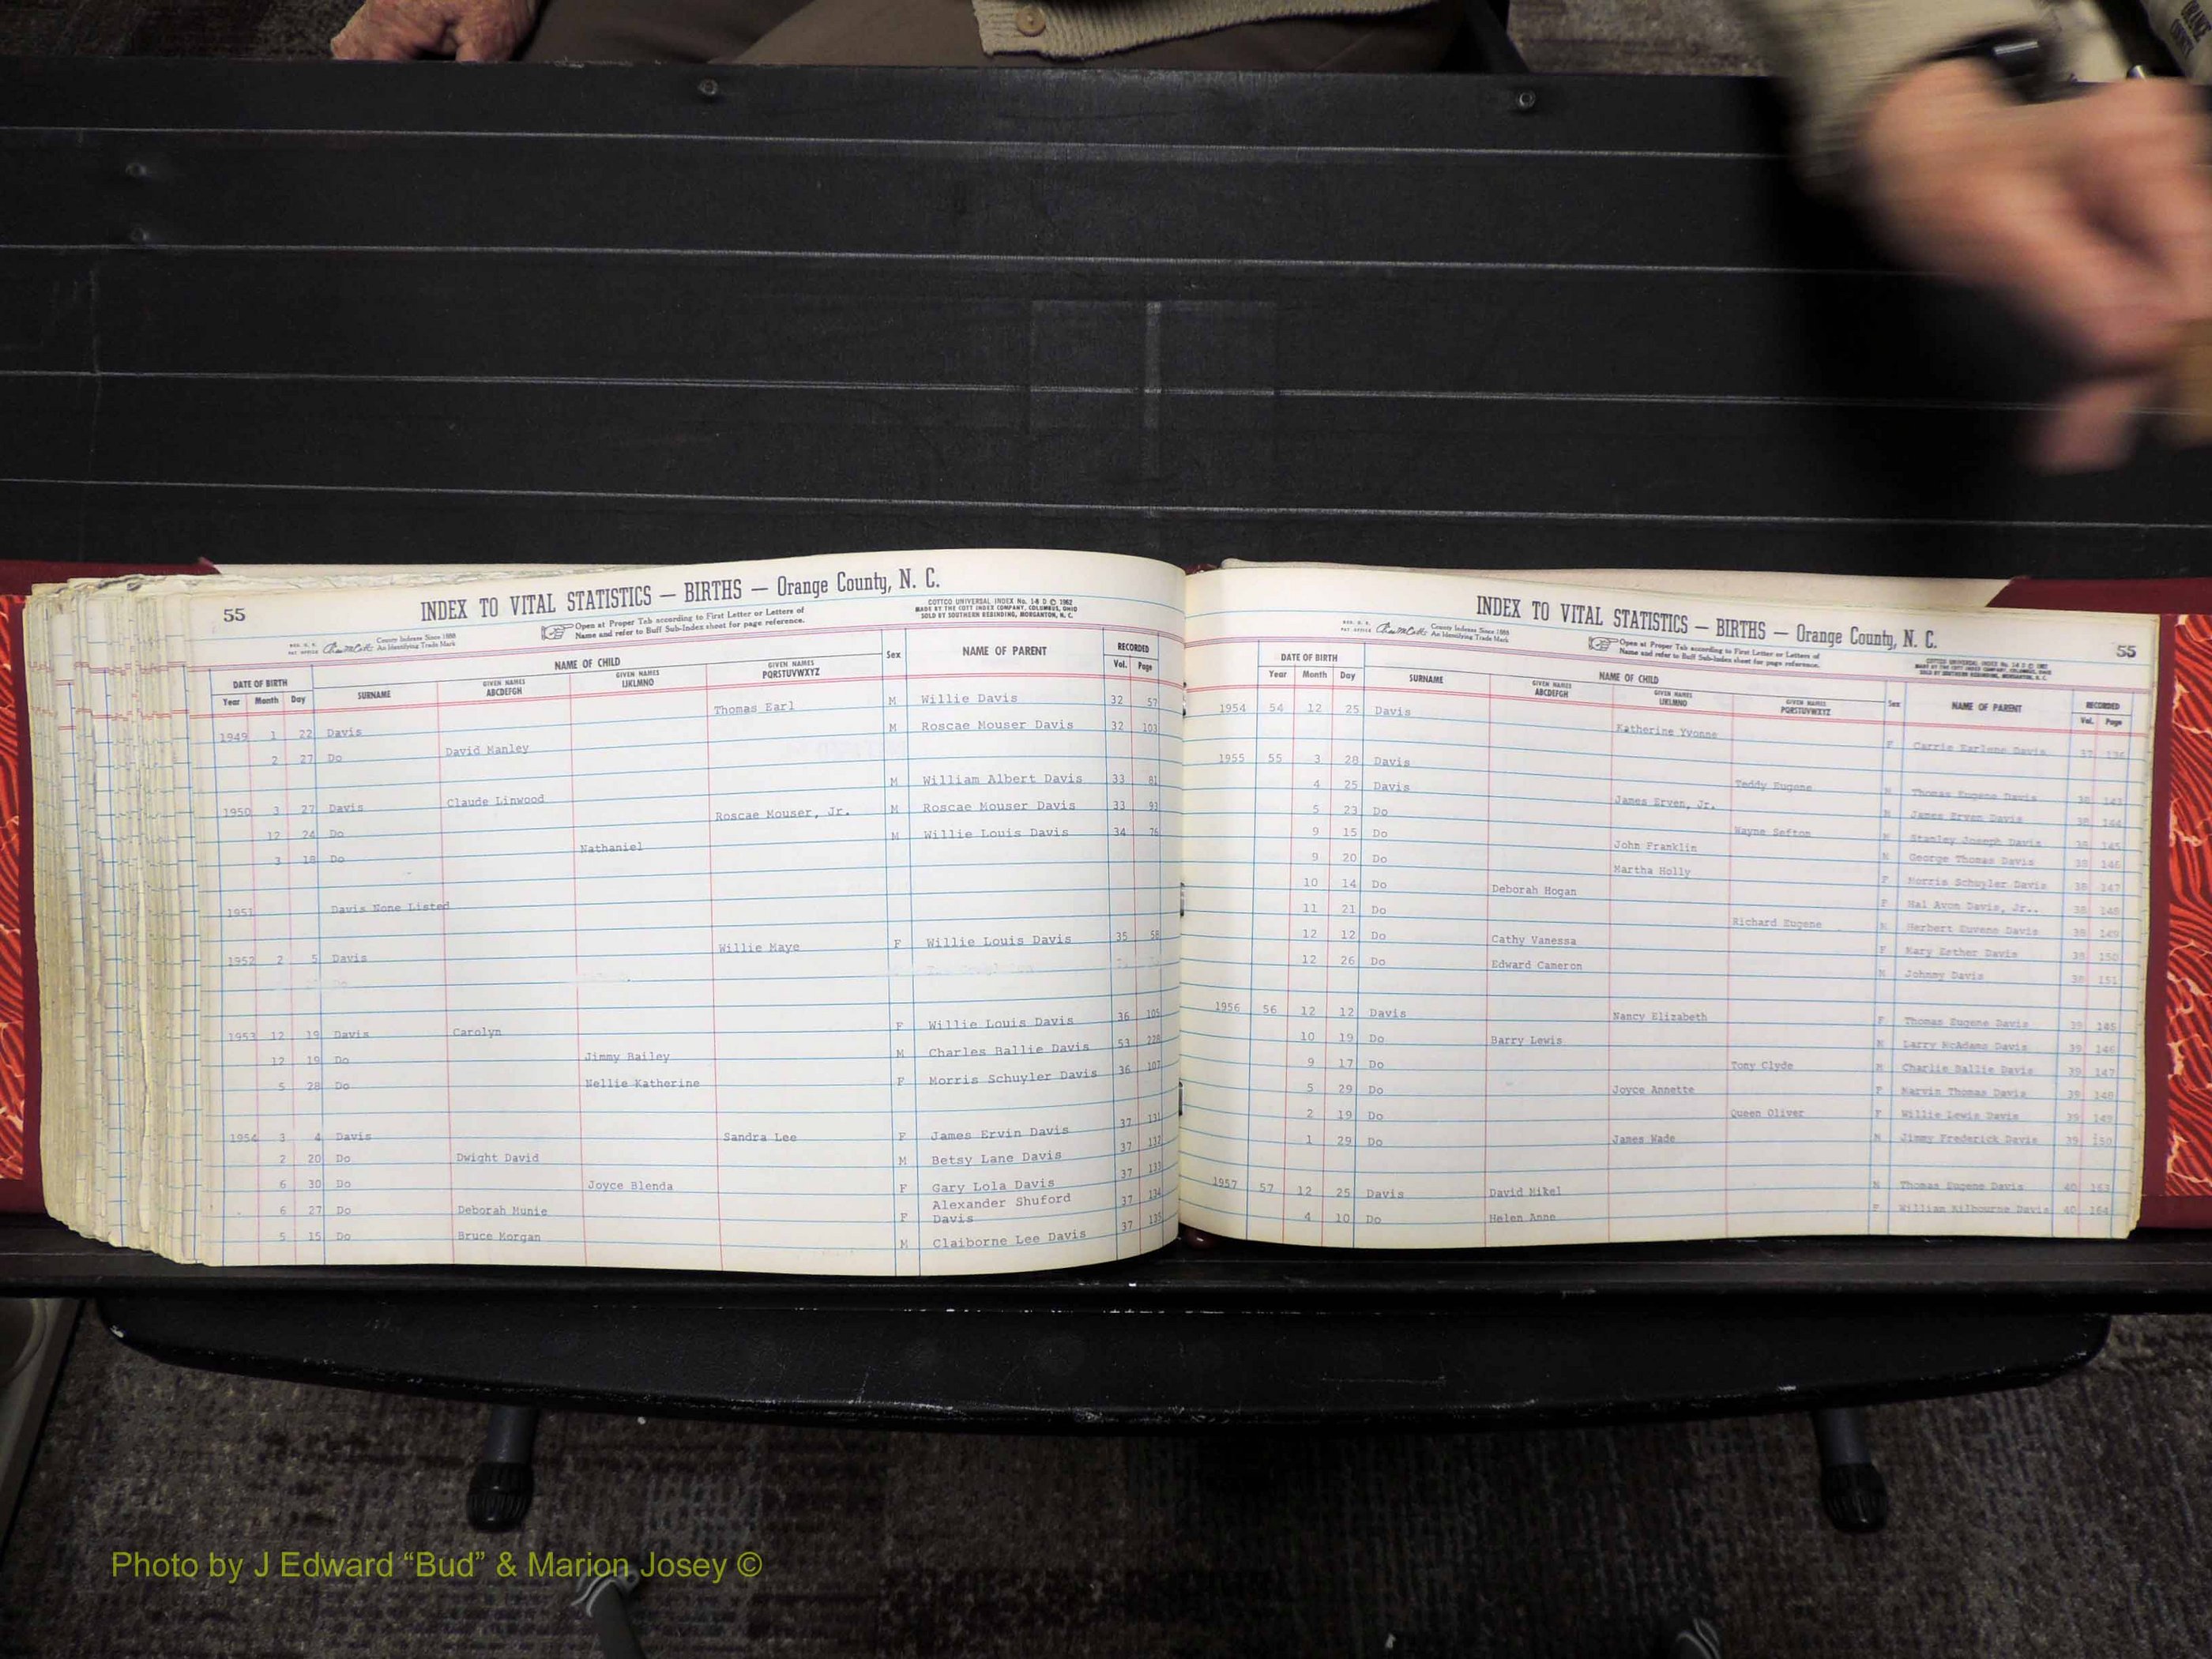 55
INDEX TO VITAL STATISTICS — BIRTHS — Orange County, N. C.
COTTCO UNIVERSAL INDEX No. 1-8 D © 1962
MADE BY THE COTT INDEX COMPANY, COLUMBUS, OHIO
SOLD BY SOUTHERN REBINDING, MORGANTON, N. C.
County Indexes Since 1888
An Identifying Trade Mark
Open at Proper Tab according to First Letter or Letters of
Name and refer to Buff Sub-Index sheet for page reference.
DATE OF BIRTH NAME OF CHILD Sex NAME OF PARENT RECORDED
Year Month Day SURNAME GIVEN NAMES ABCDEFGH GIVEN NAMES IJKLMNO GIVEN NAMES PQRSTUVWXYZ Vol. Page
1949 1 22 Davis Thomas Earl M Willie Davis 32 57
2 27 Do David Manley M Roscae Mouser Davis 32 103
1950 3 27 Davis Claude Linwood M William Albert Davis 33 81
12 24 Do Roscae Mouser, Jr. M Roscae Mouser Davis 33 93
3 18 Do Nathaniel M Willie Louis Davis 34 76
1951 Davis None Listed
1952 2 5 Davis Willie Maye F Willie Louis Davis 35 58
1953 12 19 Davis Carolyn F Willie Louis Davis 36 105
12 19 Do Jimmy Bailey M Charles Ballie Davis 53 228
5 28 Do Nellie Katherine F Morris Schuyler Davis 36 107
1954 3 4 Davis Sandra Lee F James Ervin Davis 37 131
2 20 Do Dwight David M Betsy Lane Davis 37 132
6 30 Do Joyce Blenda F Gary Lola Davis 37 133
6 27 Do Deborah Munie F Alexander Shuford Davis 37 134
5 15 Do Bruce Morgan M Claiborne Lee Davis 37 135
INDEX TO VITAL STATISTICS — BIRTHS — Orange County, N. C.
55
County Indexes Since 1888
An Identifying Trade Mark
Open at Proper Tab according to First Letter or Letters of
Name and refer to Buff Sub-Index sheet for page reference.
DATE OF BIRTH NAME OF CHILD Sex NAME OF PARENT RECORDED
Year Month Day SURNAME GIVEN NAMES ABCDEFGH GIVEN NAMES IJKLMNO GIVEN NAMES PQRSTUVWXYZ Vol. Page
1954 54 12 25 Davis Katherine Yvonne F Carrie Earlene Davis 37 136
1955 55 3 28 Davis Teddy Eugene M Thomas Eugene Davis 38 143
4 25 Davis James Erven, Jr. M James Erven Davis 38 144
5 23 Do Wayne Sefton M Stanley Joseph Davis 38 145
9 15 Do John Franklin M George Thomas Davis 38 146
9 20 Do Martha Holly F Morris Schuyler Davis 38 147
10 14 Do Deborah Hogan F Hal Avon Davis, Jr.. 38 148
11 21 Do Richard Eugene M Herbert Euvene Davis 38 149
12 12 Do Cathy Vanessa F Mary Esther Davis 38 150
12 26 Do Edward Cameron M Johnny Davis 38 151
1956 56 12 12 Davis Nancy Elizabeth F Thomas Eugene Davis 39 145
10 19 Do Barry Lewis M Larry McAdams Davis 39 146
9 17 Do Tony Clyde M Charlie Ballie Davis 39 147
5 29 Do Joyce Annette F Marvin Thomas Davis 39 148
2 19 Do Queen Oliver F Willie Lewis Davis 39 149
1 29 Do James Wade M Jimmy Frederick Davis 39 150
1957 57 12 25 Davis David Mikel M Thomas Eugene Davis 40 163
4 10 Do Helen Anne F William Kilbourne Davis 40 164
Photo by J Edward “Bud” & Marion Josey ©